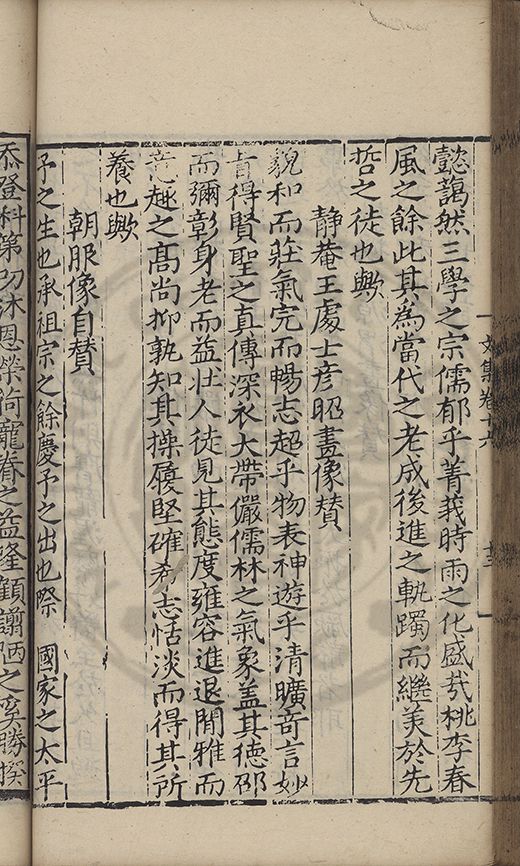 文集卷十六
十三
懿藹然三學之宗儒郁乎菁莪時雨之化盛哉桃李春
風之餘此其為當代之老成後進之軌躅而繼美於先
哲之徒也歟
静菴王處士彦昭畫像賛
貌和而莊氣完而暢志超乎物表神遊乎清曠奇言妙
㫖得賢聖之真傳深衣大帶儼儒林之氣象盖其德邵
而彌彰身老而益壮人徒見其態度雍容進退閒雅而
意趣之髙尚抑孰知其操履堅確希志恬淡而得其所
養也歟
朝服像自賛
予之生也承祖宗之餘慶予之出也際　國家之太平
忝登科第叨沐恩榮荷寵眷之益隆顧譾陋之奚勝揆